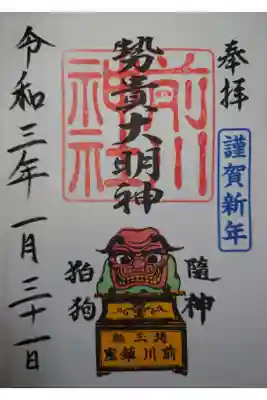 奉拝
謹賀新年
前川神社
勢貴大明神
隨神
狛狗
前川鎮座
令和三年一月三十一日